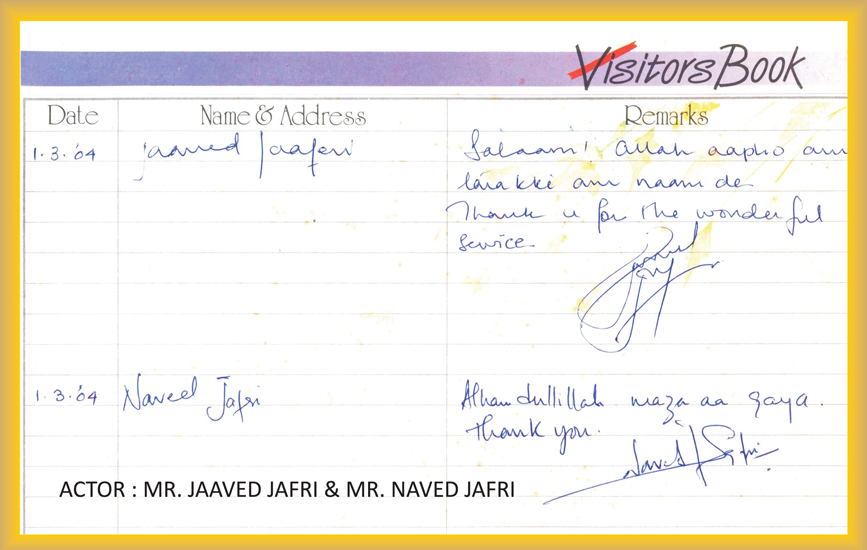 Visitors Book
Date Name & Address Remarks
1.3.'04 Jaaved Jaaferi Salaam! Allah aapko aur
tarakki aur naam de
Thank u for the wonderful
service.
Jaaved
1.3.'04 Naved Jafri Alhamdullillah maza aa gaya.
Thank you.
Naved Jafri
ACTOR : MR. JAAVED JAFRI & MR. NAVED JAFRI